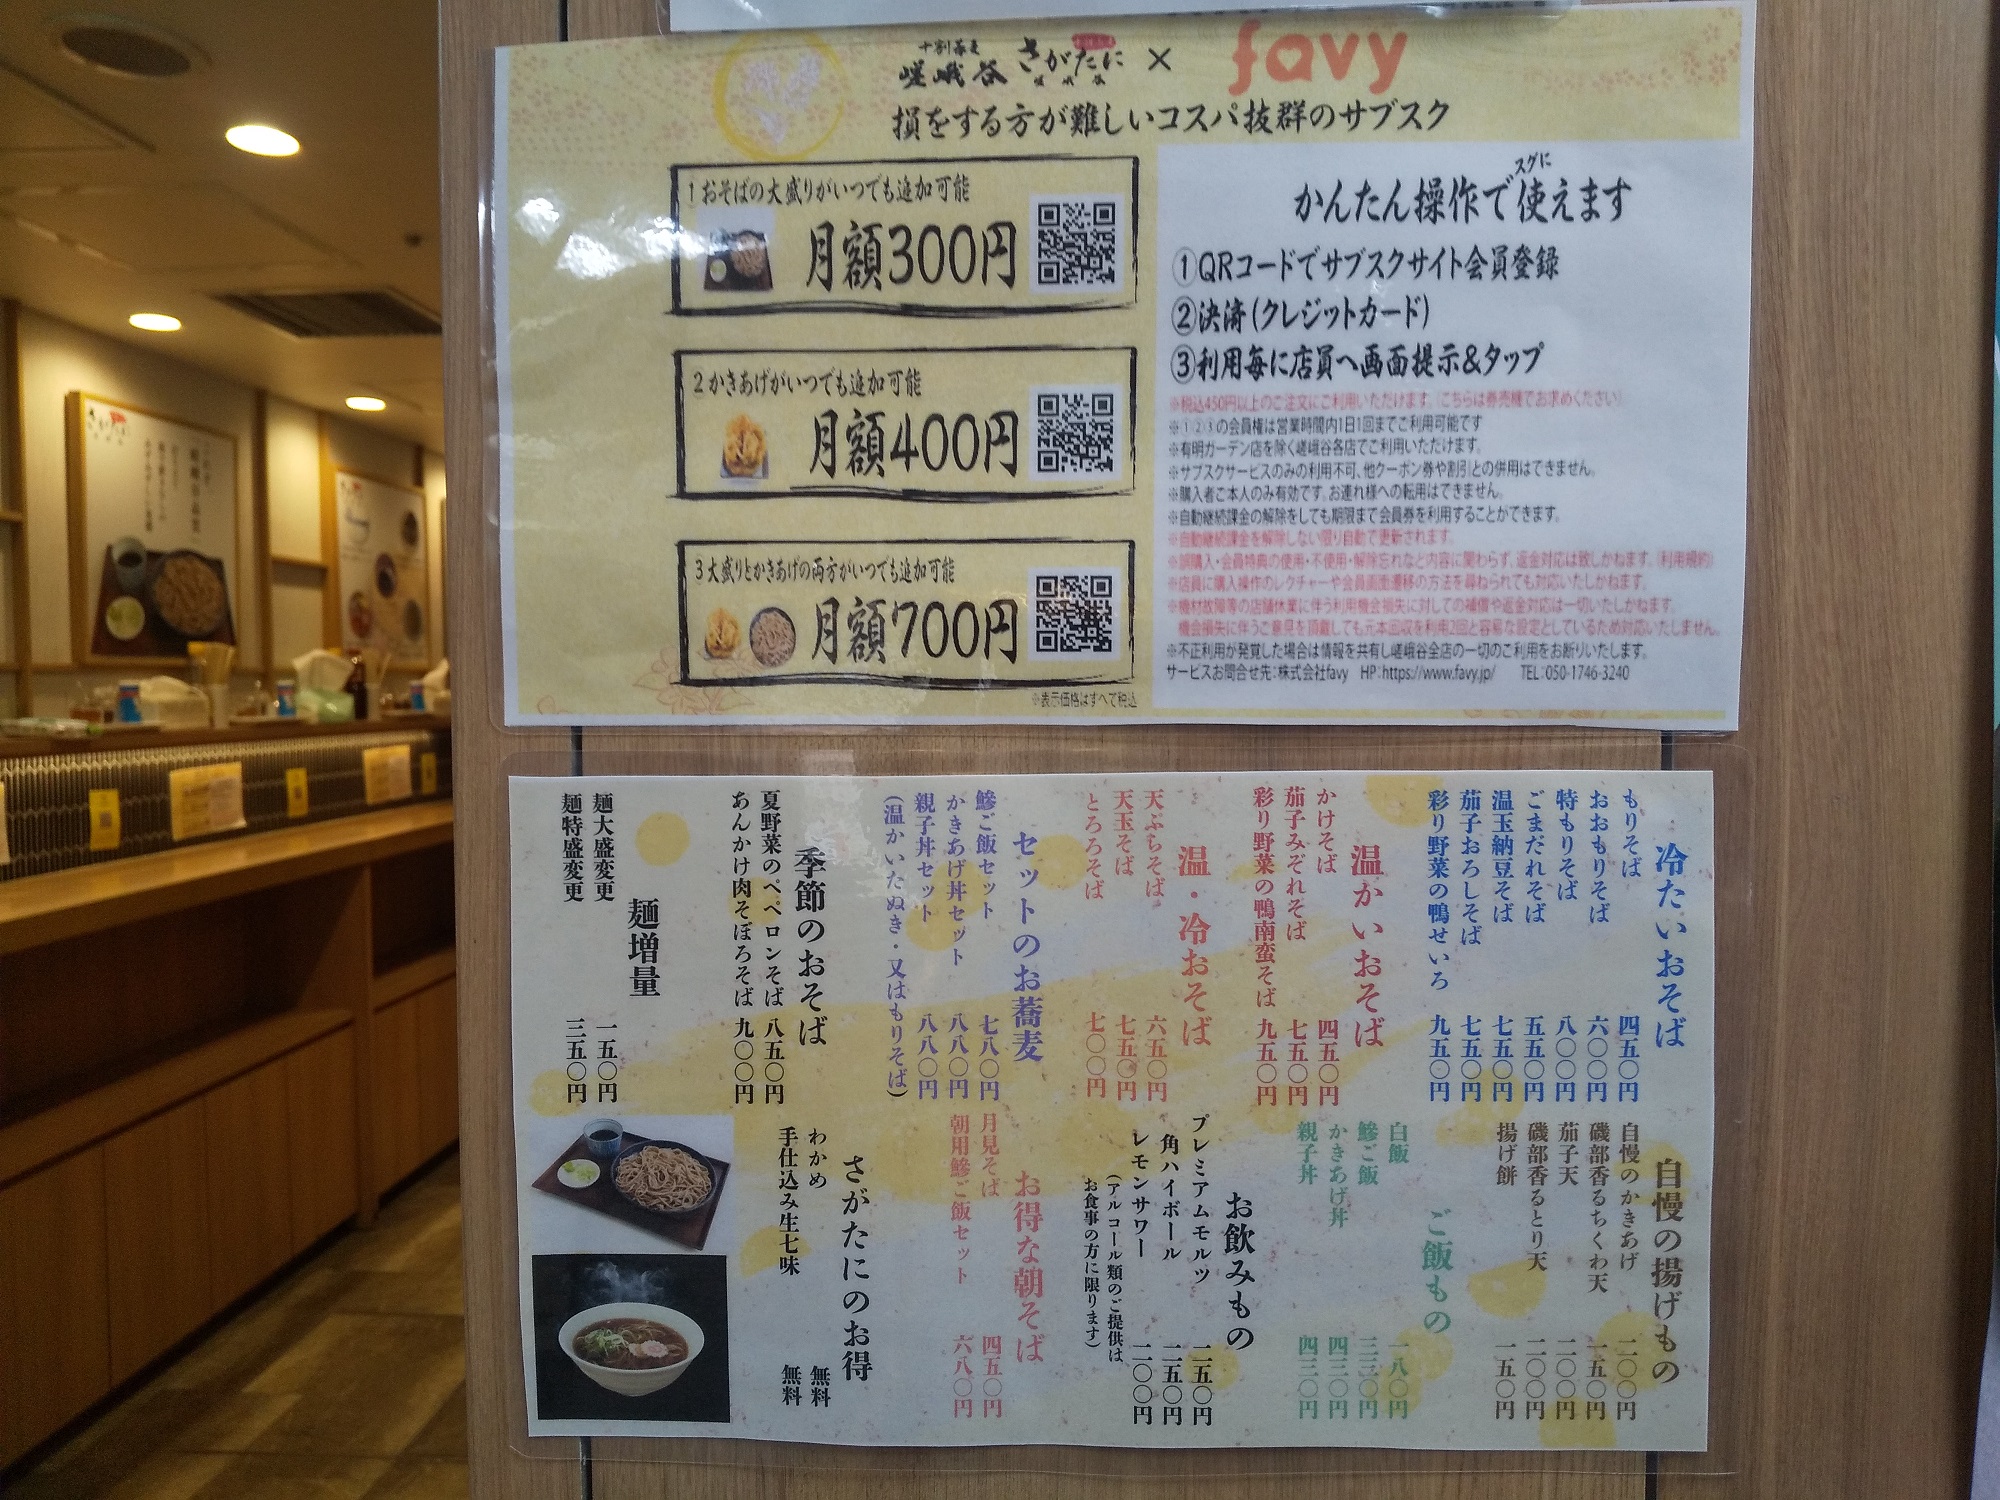 十割蕎麦
嵯峨谷 さがたに × favy
損をする方が難しいコスパ抜群のサブスク
1おそばの大盛りがいつでも追加可能
月額300円
2かきあげがいつでも追加可能
月額400円
3大盛りとかきあげの両方がいつでも追加可能
月額700円
※表示価格はすべて税込
スグに
かんたん操作で使えます
①QRコードでサブスクサイト会員登録
②決済(クレジットカード)
③利用毎に店員へ画面提示&タップ
※税込450円以上のご注文にご利用いただけます。(こちらは券売機でお求めください)
※①②③の会員権は営業時間内1日1回までご利用可能です
※有明ガーデン店を除く嵯峨谷各店でご利用いただけます。
※サブスクサービスのみの利用不可、他クーポン券や割引との併用はできません。
※購入者ご本人のみ有効です。お連れ様への転用はできません。
※自動継続課金の解除をしても期限まで会員券を利用することができます。
※自動継続課金を解除しない限り自動で更新されます。
※誤購入・会員特典の使用・不使用・解除忘れなど内容に関わらず、返金対応は致しかねます。(利用規約)
※店員に購入操作のレクチャーや会員画面遷移の方法を尋ねられても対応いたしかねます。
※機材故障等の店舗休業に伴う利用機会損失に対しての補償や返金対応は一切いたしかねます。
機会損失に伴うご意見を頂戴しても元本回収を利用2回と容易な設定としているため対応いたしません。
※不正利用が発覚した場合は情報を共有し嵯峨谷全店の一切のご利用をお断りいたします。
サービスお問合せ先:株式会社favy HP:https://www.favy.jp/ TEL:050-1746-3240
冷たいおそば
もりそば 四五〇円
おおもりそば 六〇〇円
特もりそば 八〇〇円
ごまだれそば 五五〇円
温玉納豆そば 七五〇円
茄子おろしそば 七五〇円
彩り野菜の鴨せいろ 九五〇円
温かいおそば
かけそば 四五〇円
茄子みぞれそば 七五〇円
彩り野菜の鴨南蛮そば 九五〇円
温・冷おそば
天ぷらそば 六五〇円
天玉そば 七五〇円
とろろそば 七〇〇円
セットのお蕎麦
鰺ご飯セット 七八〇円
かきあげ丼セット 八八〇円
親子丼セット 八八〇円
(温かいたぬき・又はもりそば)
季節のおそば
夏野菜のペペロンそば 八五〇円
あんかけ肉そぼろそば 九〇〇円
麺増量
麺大盛変更 一五〇円
麺特盛変更 三五〇円
自慢の揚げもの
自慢のかきあげ 二〇〇円
磯部香るちくわ天 一五〇円
茄子天 二〇〇円
磯部香るとり天 二〇〇円
揚げ餅 一五〇円
ご飯もの
白飯 一八〇円
鰺ご飯 三三〇円
かきあげ丼 四三〇円
親子丼 四三〇円
お飲みもの
プレミアムモルツ 二五〇円
角ハイボール 二五〇円
レモンサワー 二〇〇円
(アルコール類のご提供は
お食事の方に限ります)
お得な朝そば
月見そば 四五〇円
朝用鰺ご飯セット 六八〇円
さがたにのお得
わかめ 無料
手仕込み生七味 無料